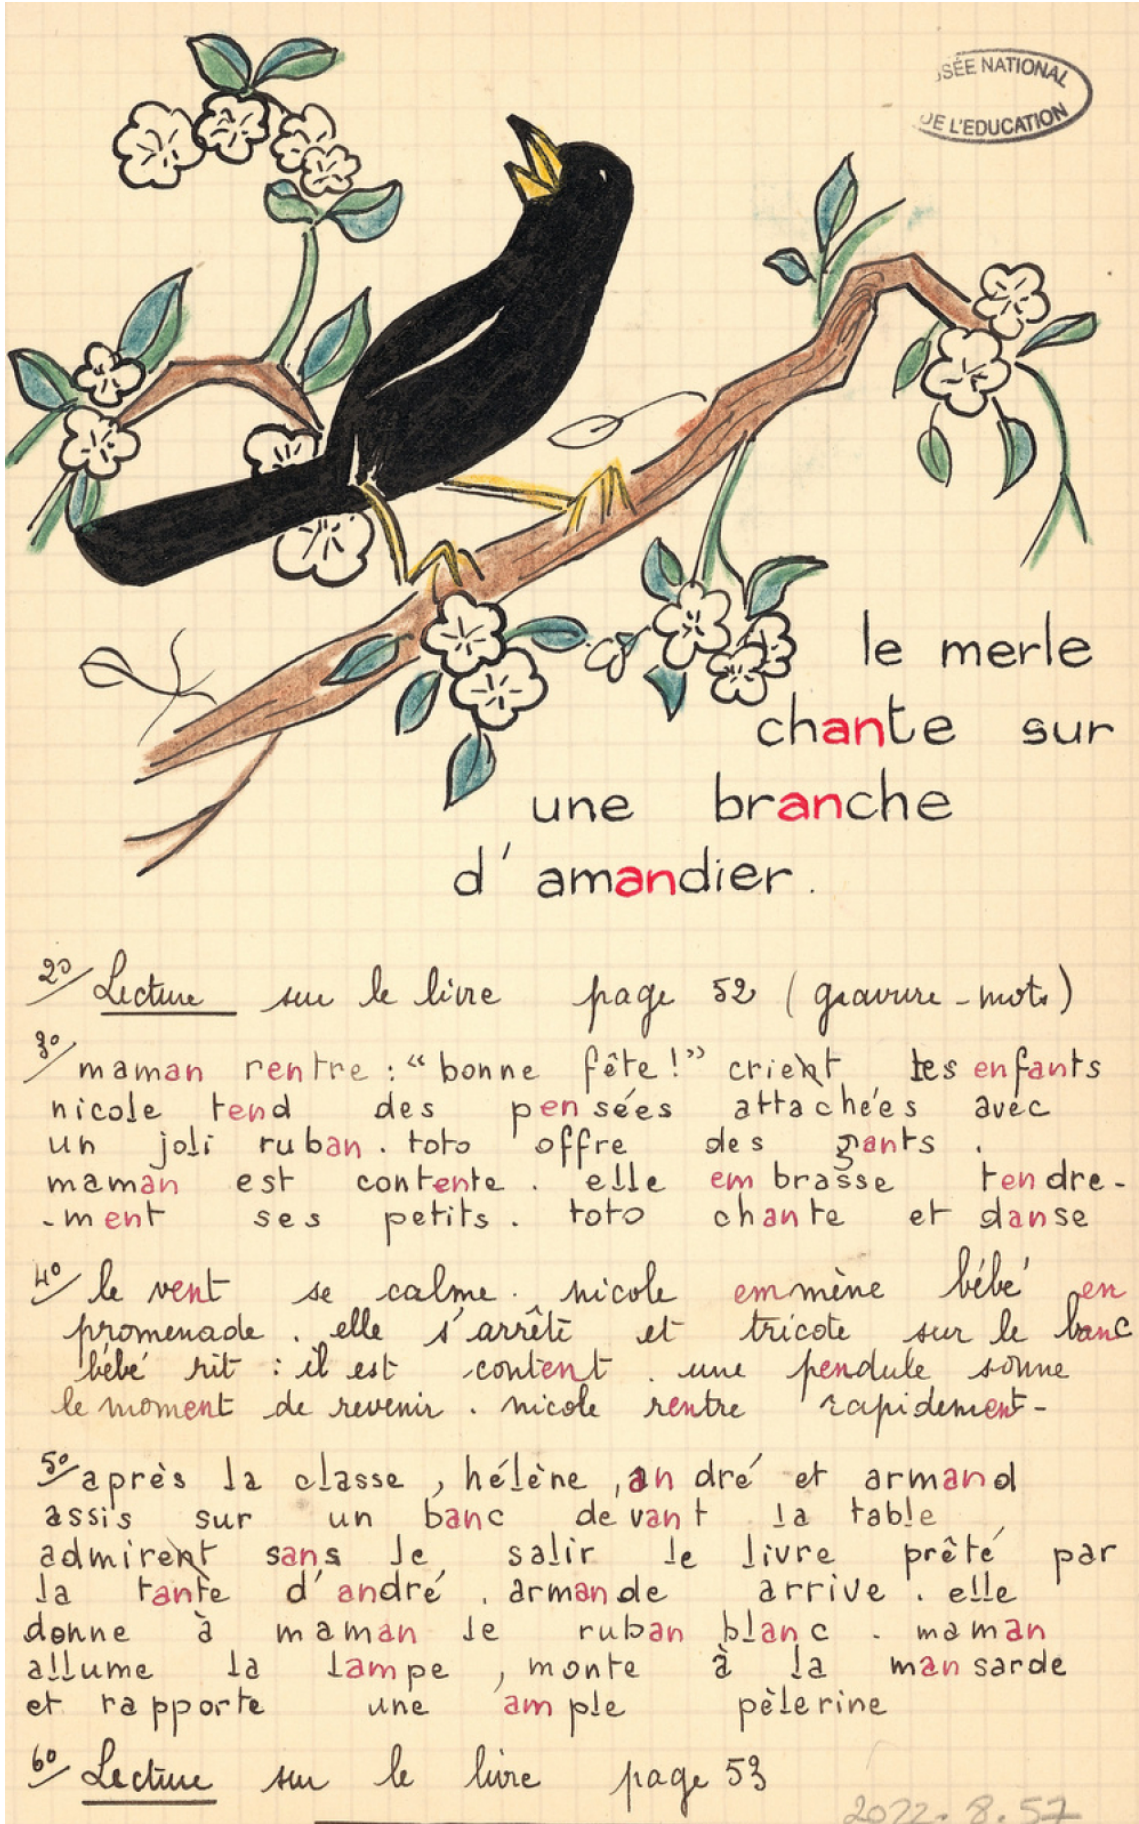 SÉE NATIONAL
DE L'EDUCATION
le merle
chante sur
une branche
d'amandier.
2º/ Lecture sur le livre page 52 (gravure - mots)
3º/ maman rentre : "bonne fête !" crient les enfants
nicole tend des pensées attachées avec
un joli ruban. toto offre des gants.
maman est contente. elle embrasse tendre-
-ment ses petits. toto chante et danse
4º/ le vent se calme. nicole emmène bébé en
promenade. elle s'arrête et tricote sur le banc
bébé rit : il est content. une pendule sonne
le moment de revenir. nicole rentre rapidement-
5º/ après la classe, hélène, andré et armand
assis sur un banc devant la table
admirent sans le salir le livre prêté par
la tante d'andré. armande arrive. elle
donne à maman le ruban blanc. maman
allume la lampe, monte à la mansarde
et rapporte une ample pèlerine
6º/ Lecture sur le livre page 53
2022.8.57